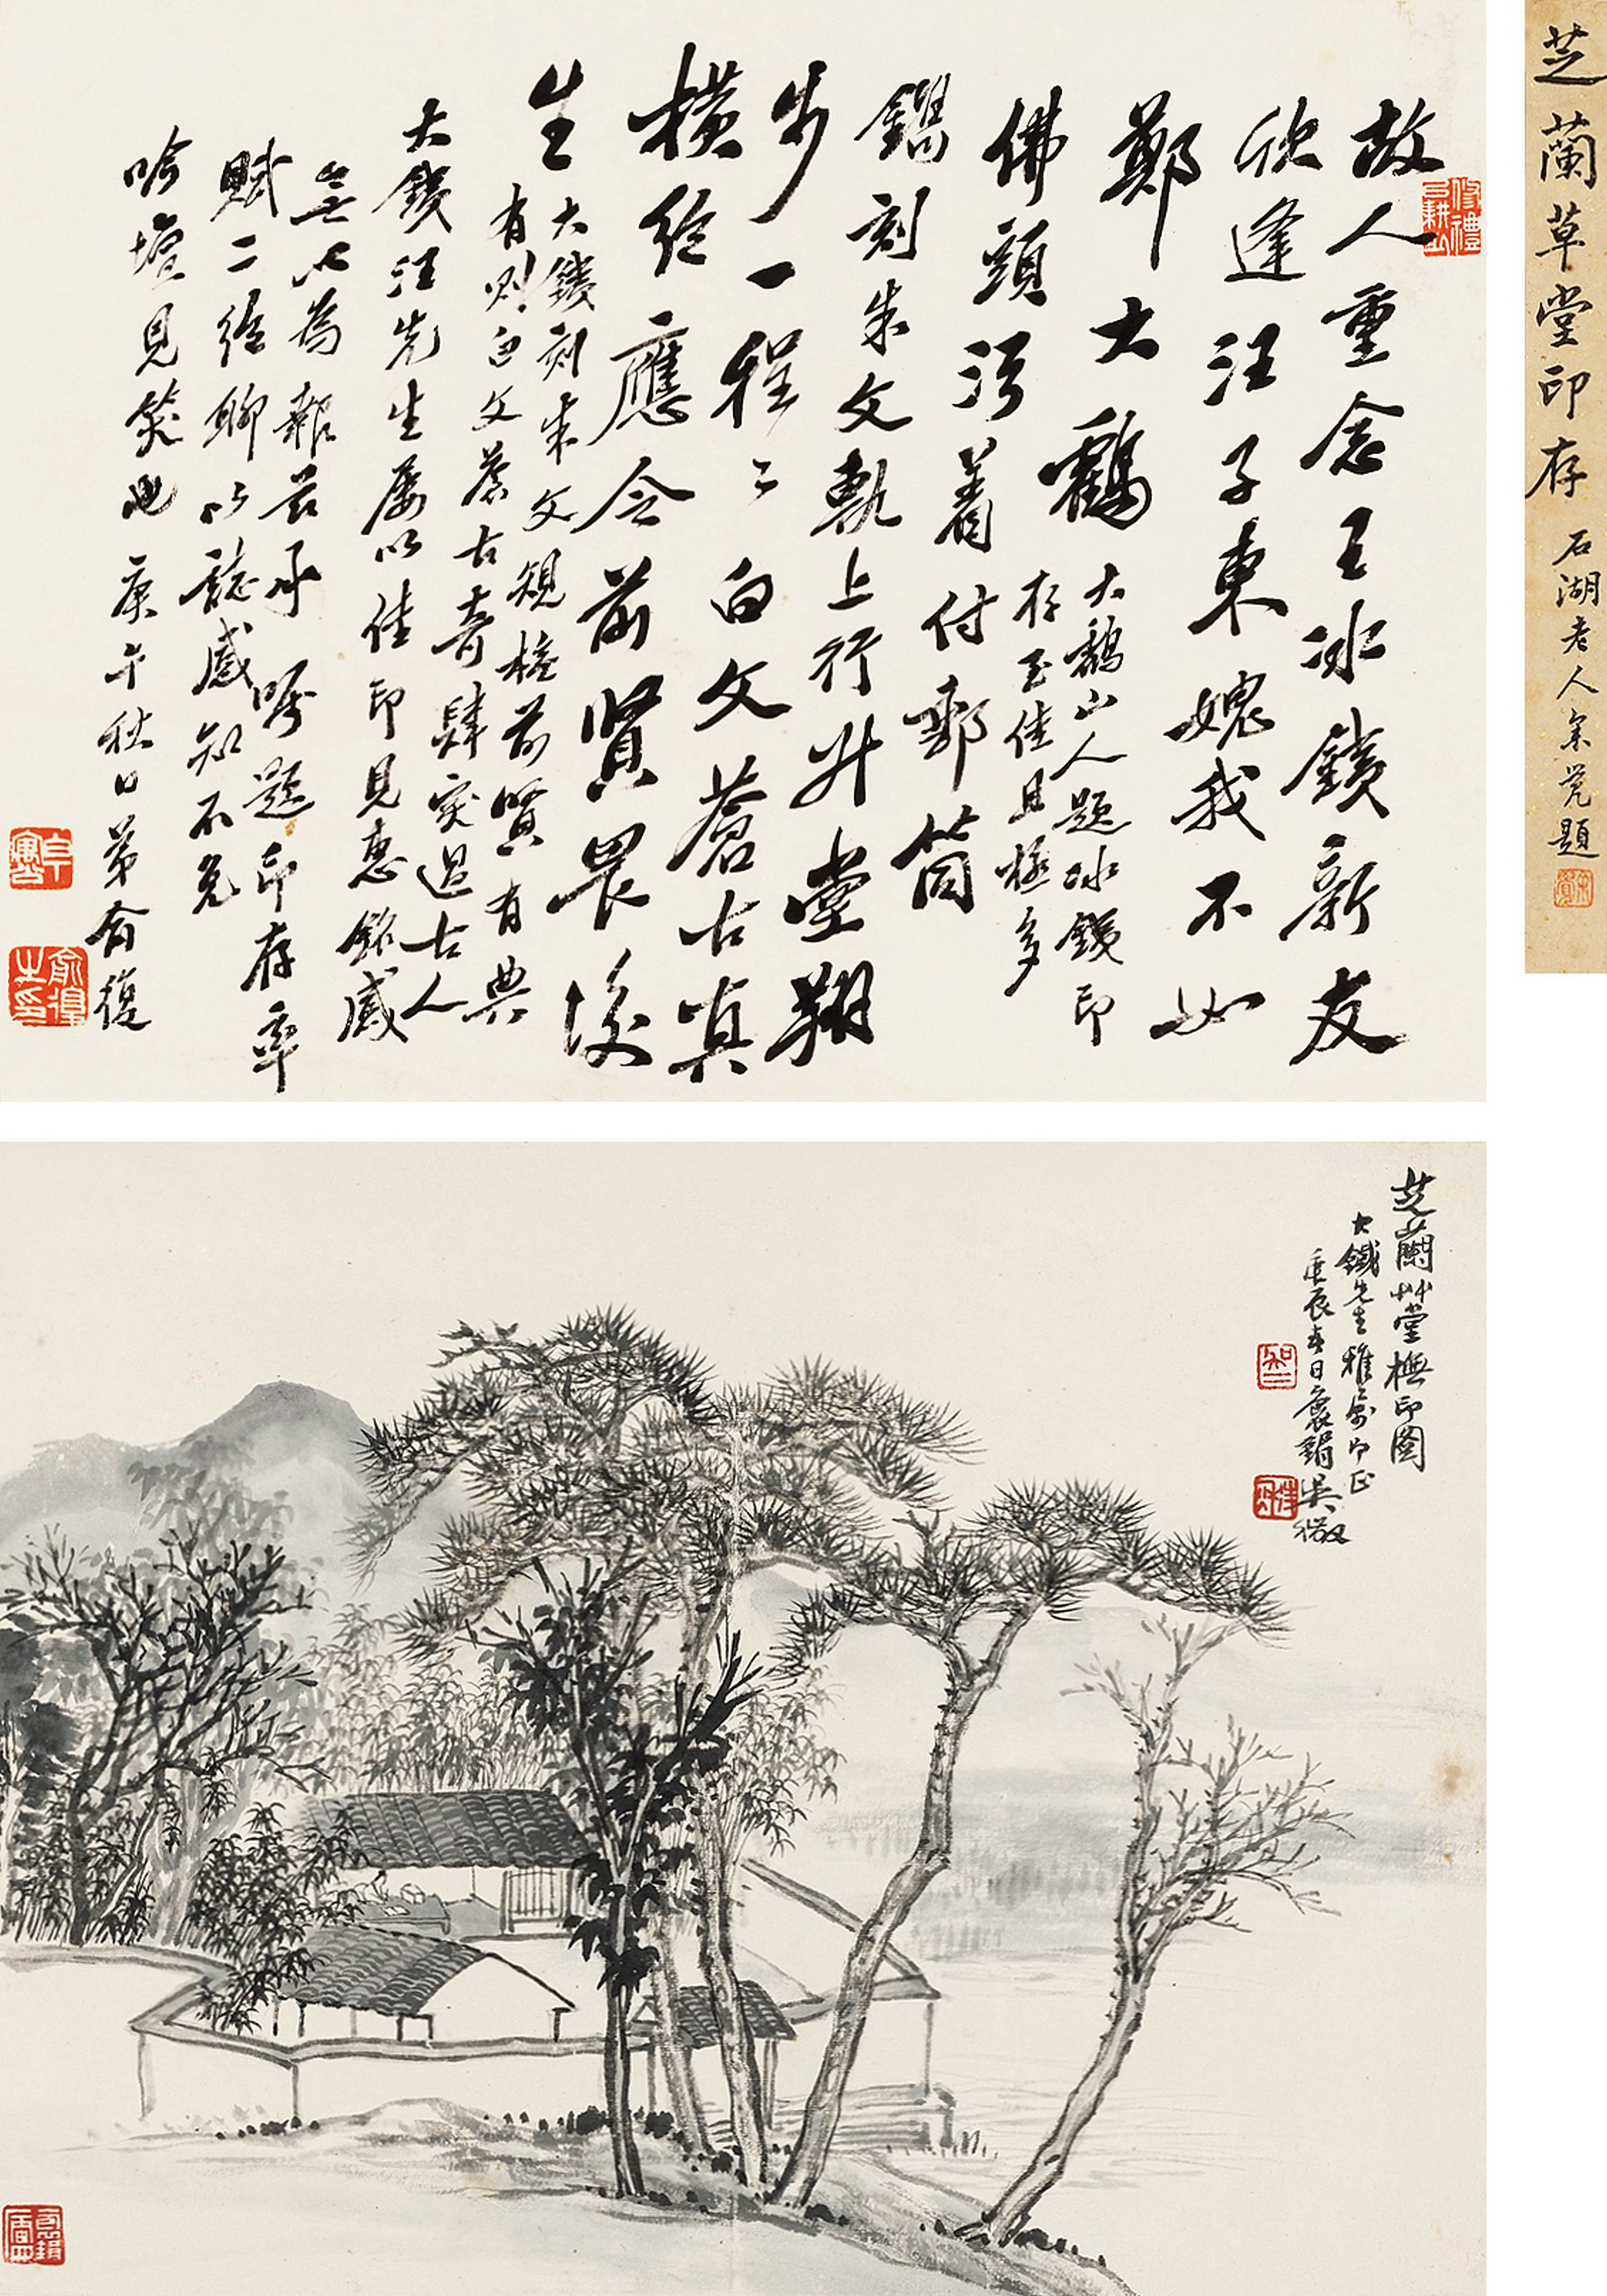 芝蘭草堂印存
石湖老人余覺題
故人重念王冰鐵新友
欣逢汪子東媿我不如
鄭大鶴
大鶴山人題冰鐵印
存至佳且極多
佛頭污着付郵筒
鐫刻朱文軌上行升堂翔
步一程〻白文蒼古真
橫絕應令前賢畏後
生
大鐵刻朱文規橅前賢有典
有則白文蒼古奇肆突過古人
大鐵汪先生屢以佳印見惠銘感
無以為報茲承囑題印存率
賦二絕聊以誌感知不免
吟壇見笑也庚午秋日弟俞復
芝蘭艸堂橅印圖
大鐵先生雅命即正
庚辰春日袌鋗吳徵